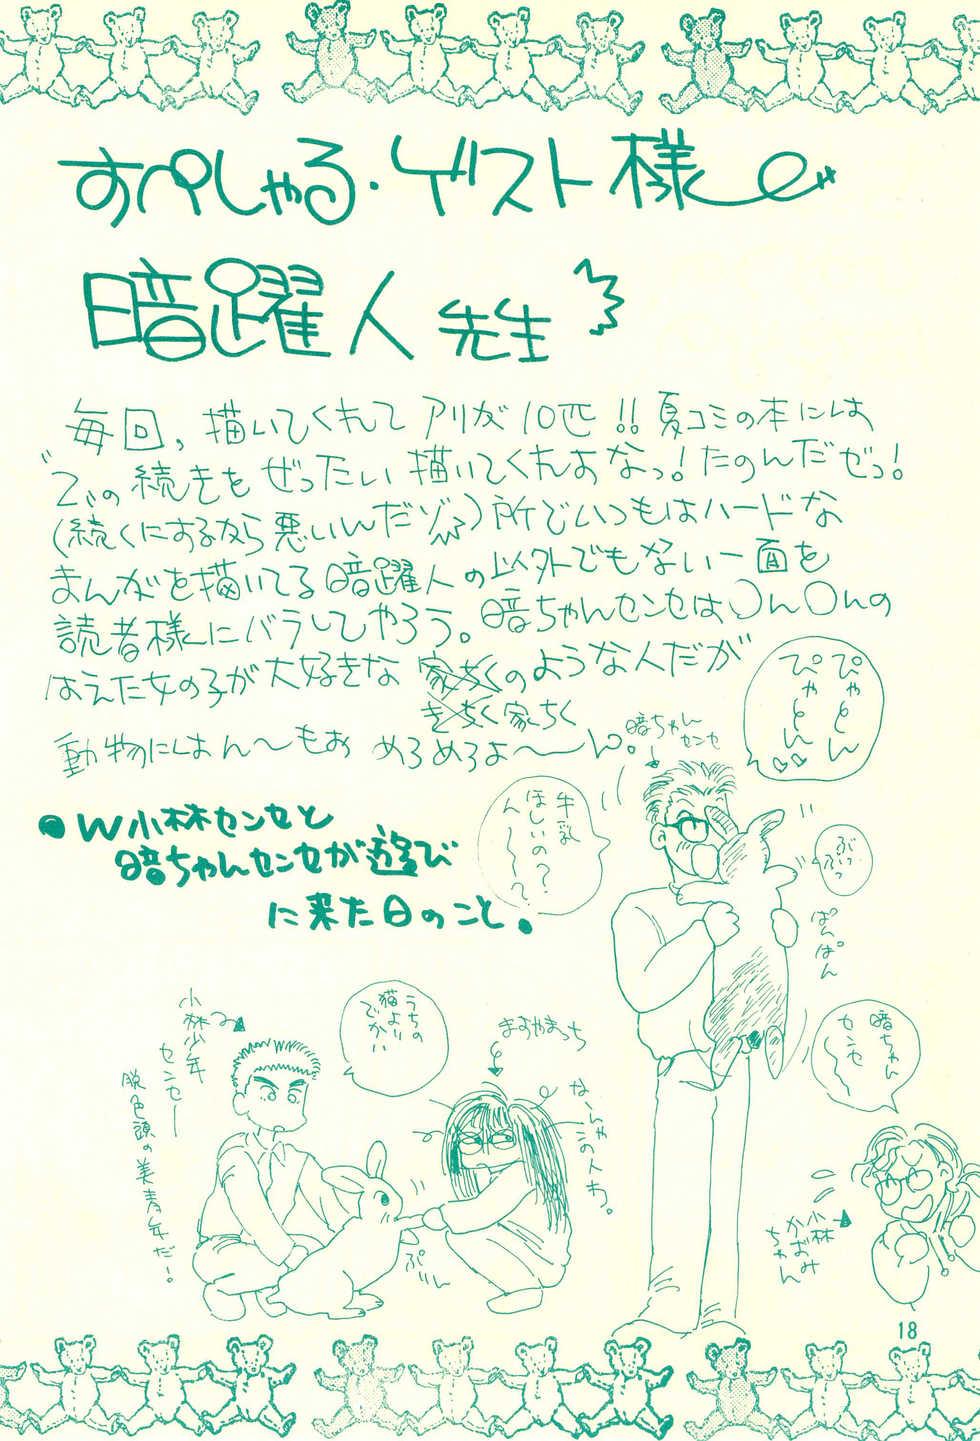 すぺしゃる・ゲスト様
暗躍人先生
毎回,描いてくれてアリが10匹!!夏コミの本には
の続きをぜったい描いてくれよなっ!たのんだぜっ!
(続くにするなら悪いんだゾ)所でいつもはハードな
まんがを描いてる暗躍人の以外でもない一面を
読者様にバラしてやろう。暗ちゃんセンセは○ん○んの
はえた女の子が大好きな 家ちくのような人だが
きちく家ちく
動物にはん〜もお めろめろよ〜ん。
●W小林センセと
暗ちゃんセンセが遊び
に来た日のこと。
暗ちゃん
センセ
ぴゃとん
ぴゃとん
牛乳
ほしいの?
ん〜〜?
ぶっ
ぶっ
ぱんぱん
暗ちゃん
センセ〜
小林
かおみ
ちゃん
ますやまっち
な〜んや
この人わ。
うちの
猫より
でかい
ぷい〜ん
小林少年
センセー
脱色頭の美青年だ!
18